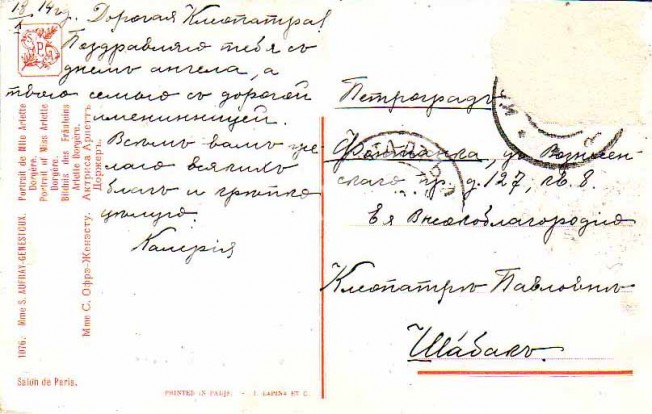 18/X 14 г.
Дорогая Клеопатра!
Поздравляю тебя съ
днемъ ангела, а
твою семью съ дорогой
именинницей.
Всѣмъ вамъ же
лаю всякихъ
благъ и крѣпко
цѣлую.
Калерія
1076. Mme S. AUFRAY-GENESTOUX.
Portrait de Mlle Arlette
Dorgère.
Portrait of Miss Arlette
Dorgère.
Bildnis des Fräuleins
Arlette Dorgère.
Мме С. Офрэ-Женэсту.
Актриса Арлеттъ
Доржеръ.
Salon de Paris.
PRINTED IN PARIS. - I. LAPINA ET C.
Петроградъ
Фонтанка, уг. Вознесен
скаго пр. д. 127, кв. 8.
Ея Высокоблагородію
Клеопатрѣ Павловнѣ
Шабакъ.